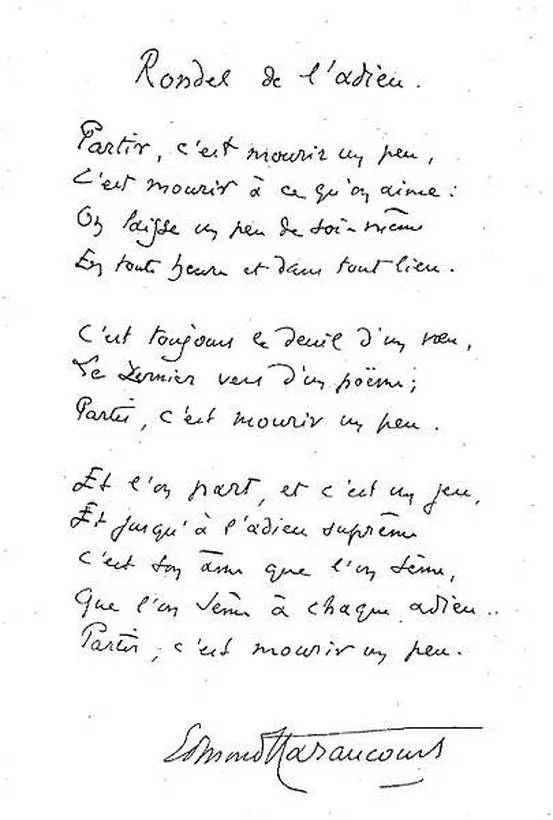 Rondel de l'adieu.
Partir, c'est mourir un peu,
C'est mourir à ce qu'on aime :
On laisse un peu de soi-même
En toute heure et dans tout lieu.
C'est toujours le deuil d'un vœu,
Le dernier vers d'un poëme ;
Partir, c'est mourir un peu.
Et l'on part, et c'est un jeu,
Et jusqu'à l'adieu suprême
C'est son âme que l'on sème,
Que l'on sème à chaque adieu..
Partir, c'est mourir un peu.
Edmond Haraucourt